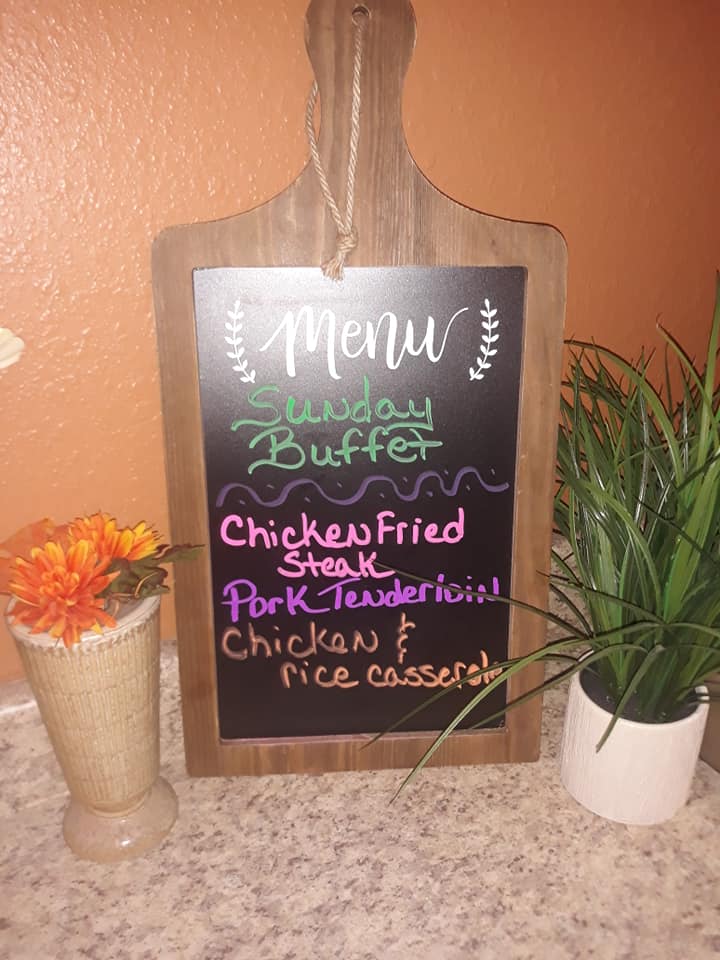 Menu
Sunday
Buffet
Chicken Fried
Steak
Pork Tenderloin
Chicken &
rice casserole